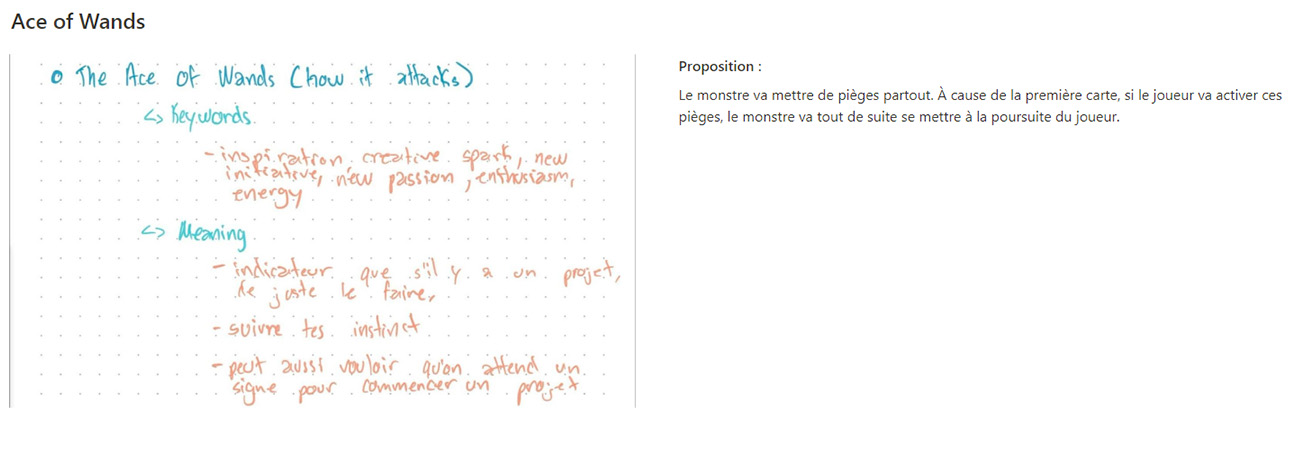 Ace of Wands
The Ace of Wands (how it attacks)
↳ Keywords
- inspiration, creative spark, new
initiative, new passion, enthusiasm,
energy
↳ Meaning
- indicateur que s'il y a un projet,
de juste le faire,
- suivre tes instinct
- peut aussi vouloir qu'on attend un
signe pour commencer un projet
Proposition :
Le monstre va mettre de pièges partout. À cause de la première carte, si le joueur va activer ces
pièges, le monstre va tout de suite se mettre à la poursuite du joueur.